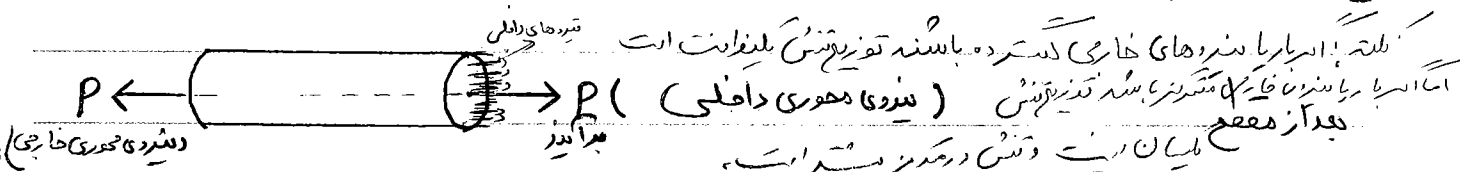 نکته: اگر بار یا نیروهای خارجی گسترده باشند توزیع تنش یکنواخت است
اما اگر بار یا نیروی خارجی متمرکز باشد توزیع تنش
بعد از مقطع یکسان نیست و تنش در مرکز بیشتر است.
نیروهای داخلی
P
P
(نیروی محوری داخلی)
برآیند
(نیروی محوری خارجی)